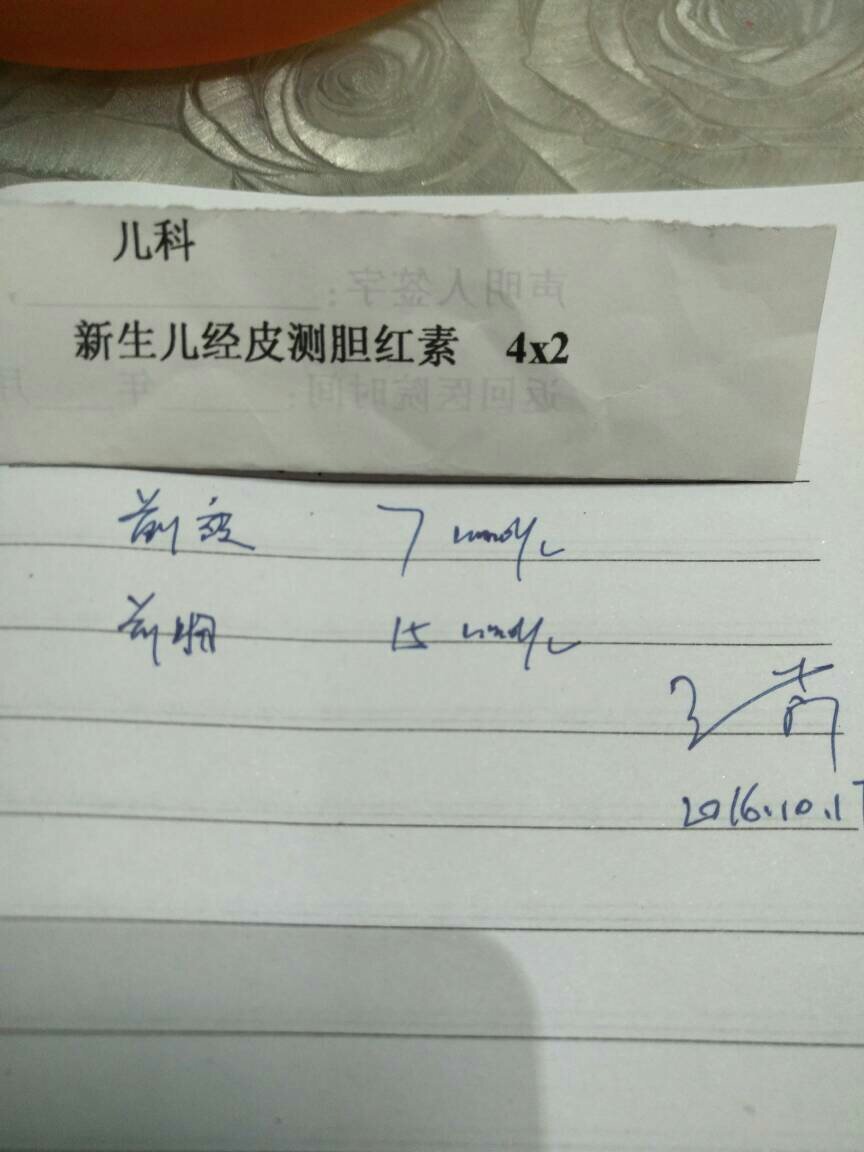 儿科
声明人签字：
新生儿经皮测胆红素 4x2
返回医院时间： 年 月
前额 7 mmol/L
前胸 15 mmol/L
2016.10.17